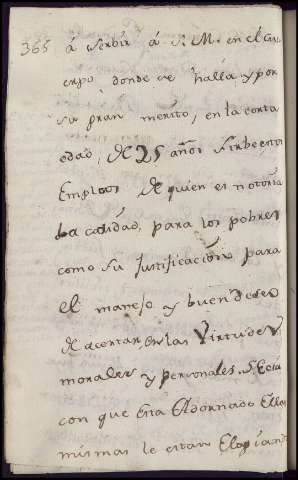 365 á Servir á S. M. en el Cu
erpo donde se halla, y por
su gran merito, en la corta
edad, de 25 años Sirbe estos
Empleos de quien es notoria
La calidad, para los pobres
como su Justificacion para
el manejo y buen deseo
de acertar, en las Virtudes,
morales y personales
con que Esta Adornado Ellas
mismas le estan Elogiando